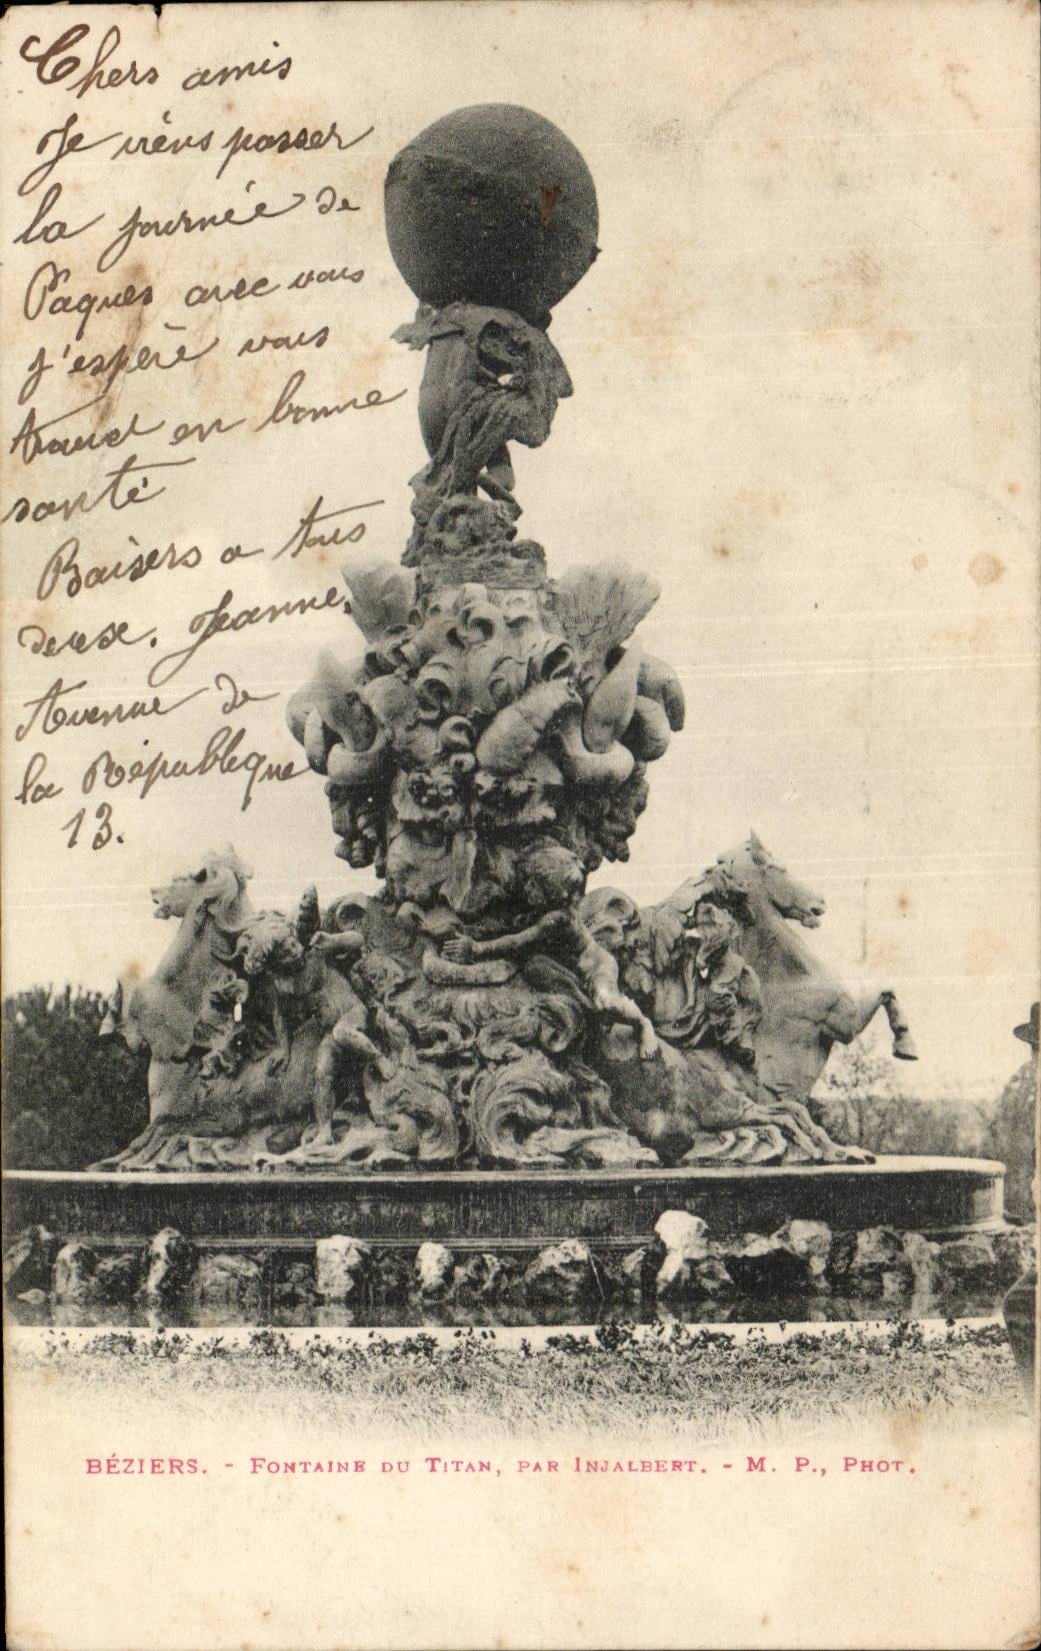 Chers amis
Je viens passer
la journée de
Paques avec vous
j'espère vous
trouver en bonne
santé
Baisers a tous
deux. Jeanne.
Avenue de
la République
13.
BÉZIERS. - FONTAINE DU TITAN, PAR INJALBERT. - M. P., PHOT.